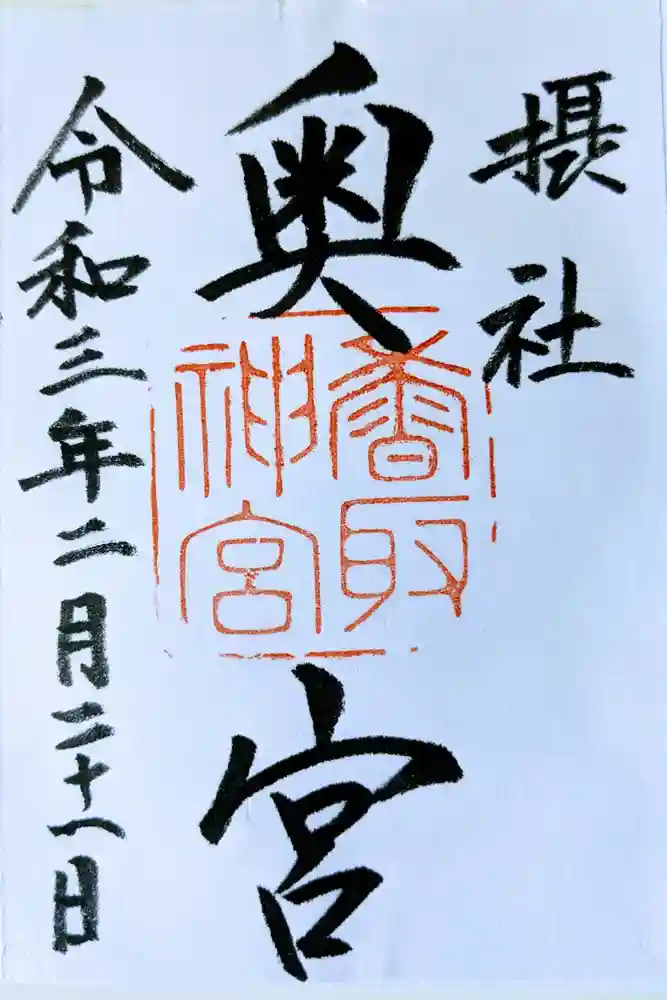 摂社
奥宮
香取
神宮
令和三年二月二十一日